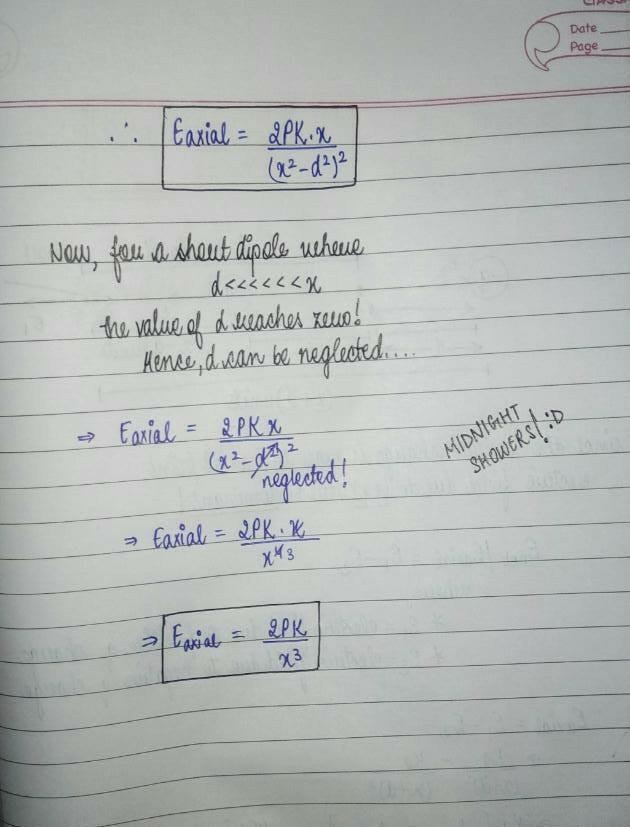 CLASS
Date
Page
∴ Eaxial = 2PK·x / (x²-d²)²
Now, for a short dipole where
d<<<<<<x
the value of d reaches zero!
Hence, d can be neglected....
⇒ Eaxial = 2PKx / (x²-d²)²
neglected!
MIDNIGHT
SHOWERS! :D
⇒ Eaxial = 2PK·x / x⁴ ³
⇒ Eaxial = 2PK / x³